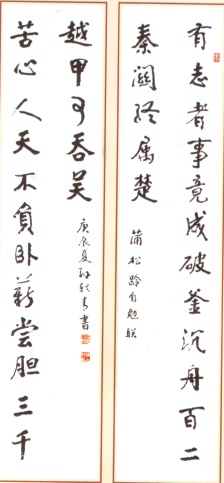 有志者事竟成破釜沉舟百二
秦關終属楚
蒲松齡自勉联
苦心人天不負卧薪尝胆三千
越甲可吞吴
庚辰夏書